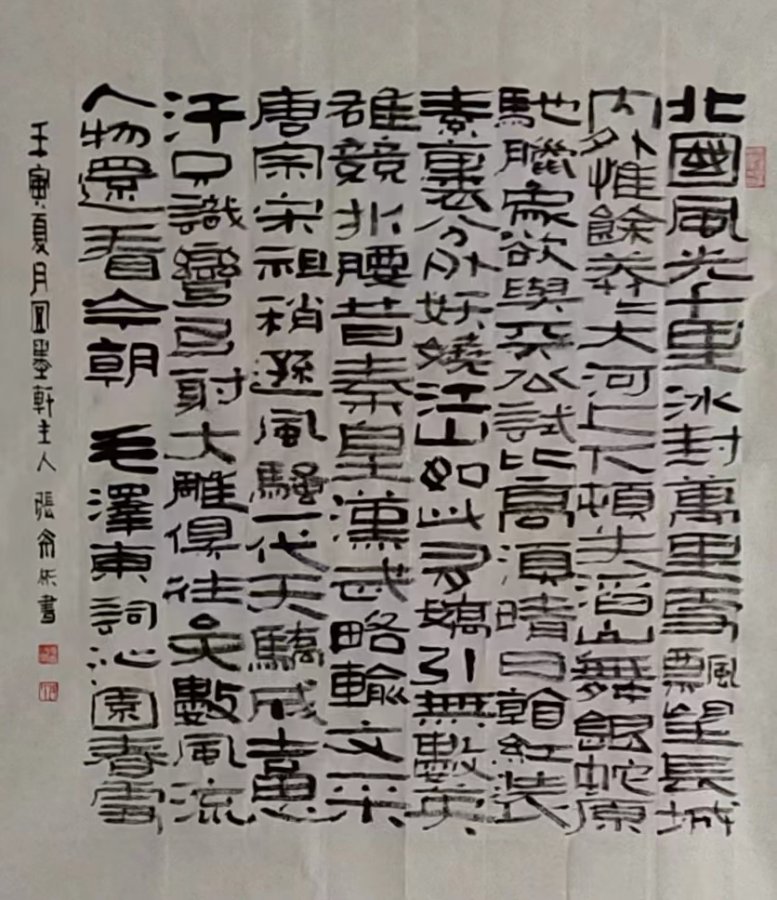 北國風光千里冰封萬里雪飄望長城
内外惟餘莽〻大河上下頓失滔〻山舞銀蛇原
馳臘象欲與天公試比高須晴日看紅装
素裹分外妖嬈江山如此多嬌引無數英
雄競折腰昔秦皇漢武略輸文采
唐宗宋祖稍遜風騷一代天驕成吉思
汗只識彎弓射大雕俱往矣數風流
人物還看今朝 毛澤東詞沁園春雪
壬寅夏月墨軒主人 張彬書